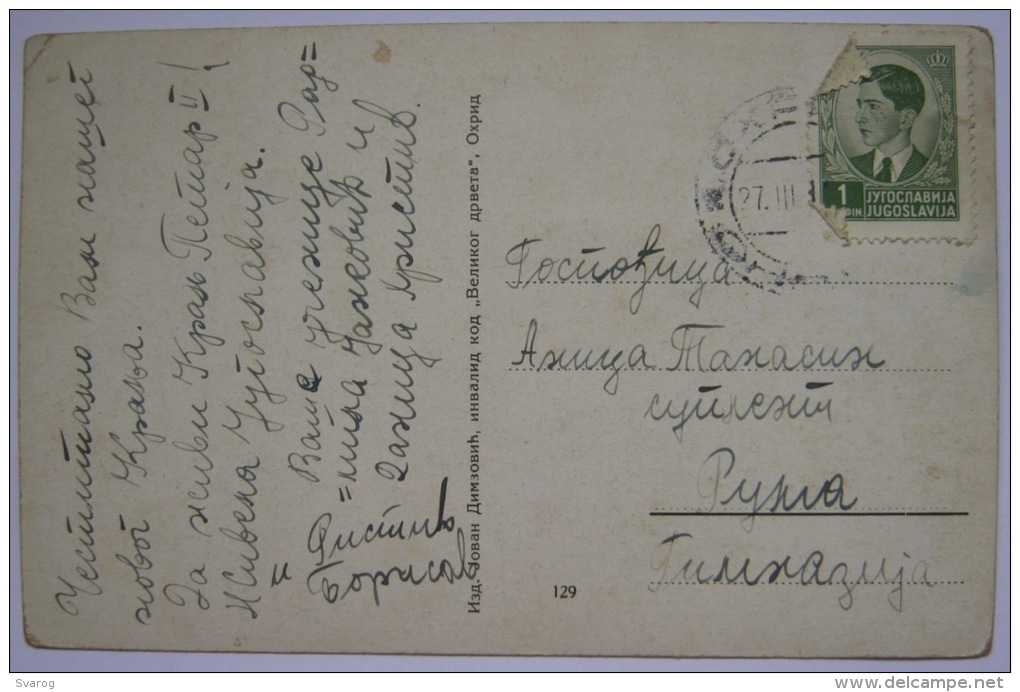 Честитамо Вам нашег
новог Краља.
Да живи Краљ Петар II!
Живела Југославија.
Ваше ученице Рад=
=мила Јанковић и
Даница Христић.
и Ристић
Борисав
Изд. Јован Димзовић, инвалид код „Великог дрвета", Охрид
129
27. III
1
DIN
ЈУГОСЛАВИЈА
JUGOSLAVIJA
Госпођица
Аница Танасин
суплент
Рума
Гимназија
Svarog
delcampe.net